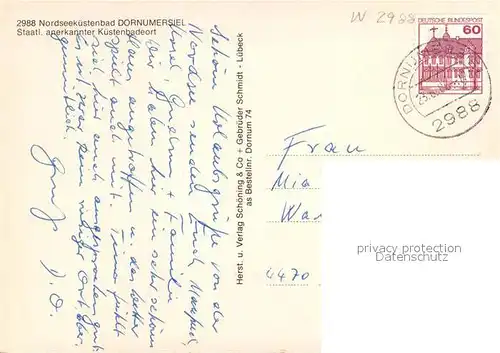 2988 Nordseeküstenbad DORNUMERSIEL
Staatl. anerkannter Küstenbadeort
W 2988
DEUTSCHE BUNDESPOST
60
2988
Schöne Urlaubsgrüße von der
Nordsee senden Euch Manfred,
+ Familie
Wir haben hier ein sehr schönes
Haus angetroffen u. das Wetter
spielt auch mit. Timo fühlt
sich hier auch angesprochen gut.
Es ist zwar kein ruhiger Ort, aber
gemütlich.
Herst. u. Verlag Schöning & Co + Gebrüder Schmidt - Lübeck
as Bestellnr. Dornum 74
Frau
4470
privacy protection
Datenschutz